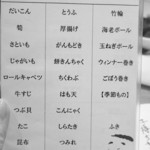 だいこん とうふ 竹輪
筍 厚揚げ 海老ボール
さといも がんもどき 玉ねぎボール
じゃがいも 餅きんちゃく ウィンナー巻き
ロールキャベツ ちくわぶ ごぼう巻き
牛すじ はも天 【季節もの】
つぶ貝 こんにゃく
たこ しらたき ふき
昆布 つみれ